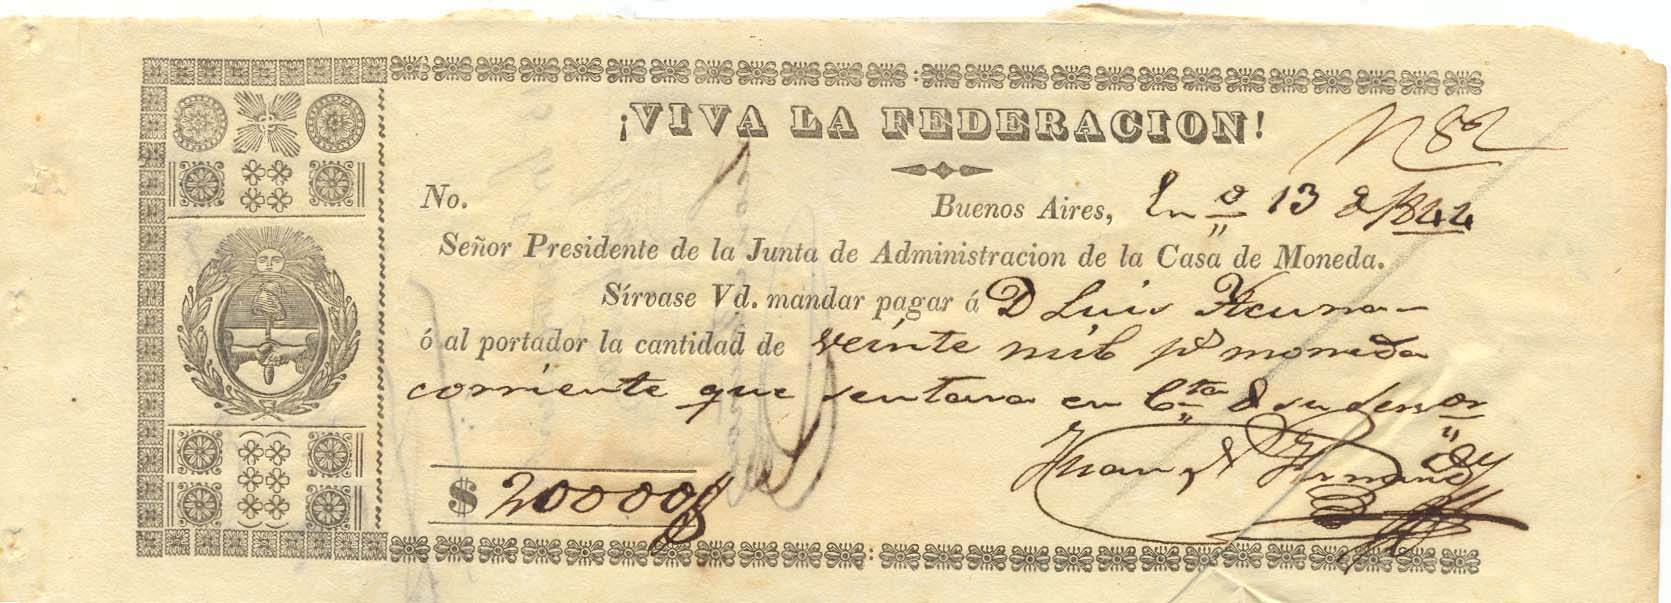 ¡VIVA LA FEDERACION!
N 82
No. Buenos Aires, En.o 13 d 1844
Señor Presidente de la Junta de Administracion de la Casa de Moneda.
Sírvase Vd. mandar pagar á D Luis Acuna
ó al portador la cantidad de veinte mil ps moneda
corriente que sentara en Cta d su serv.or
Juan Fernandez
$ 20000